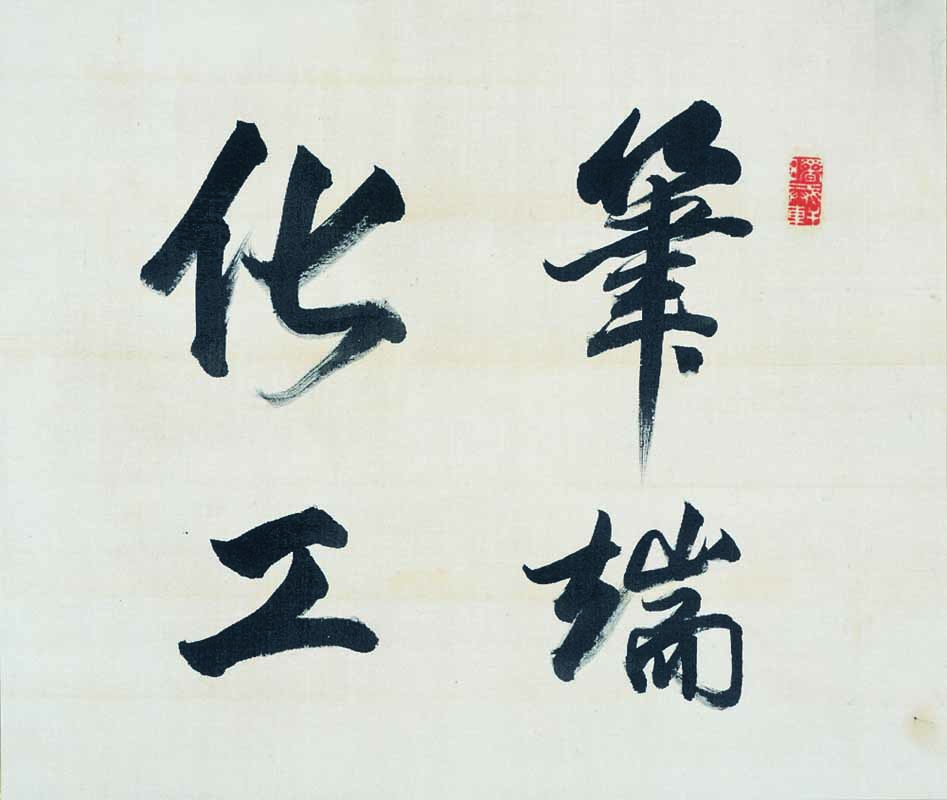 筆端
化工